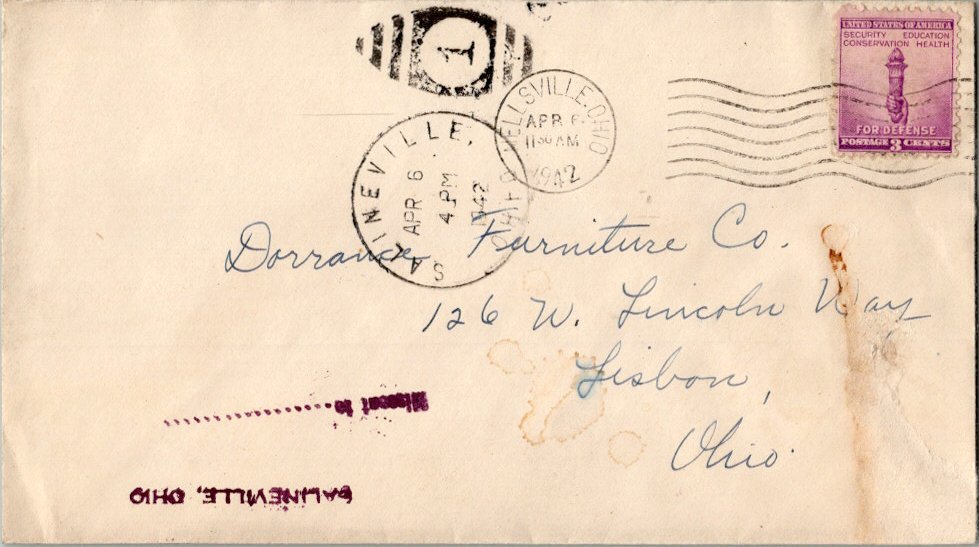 1
UNITED STATES OF AMERICA
SECURITY EDUCATION
CONSERVATION HEALTH
FOR DEFENSE
POSTAGE 3 CENTS
WELLSVILLE, OHIO
APR 6
11 30 AM
1942
SALINEVILLE, OHIO
APR 6
4 PM
1942
Dorrance Furniture Co.
126 W. Lincoln Way
Lisbon,
Ohio.
Missent to....................
SALINEVILLE, OHIO